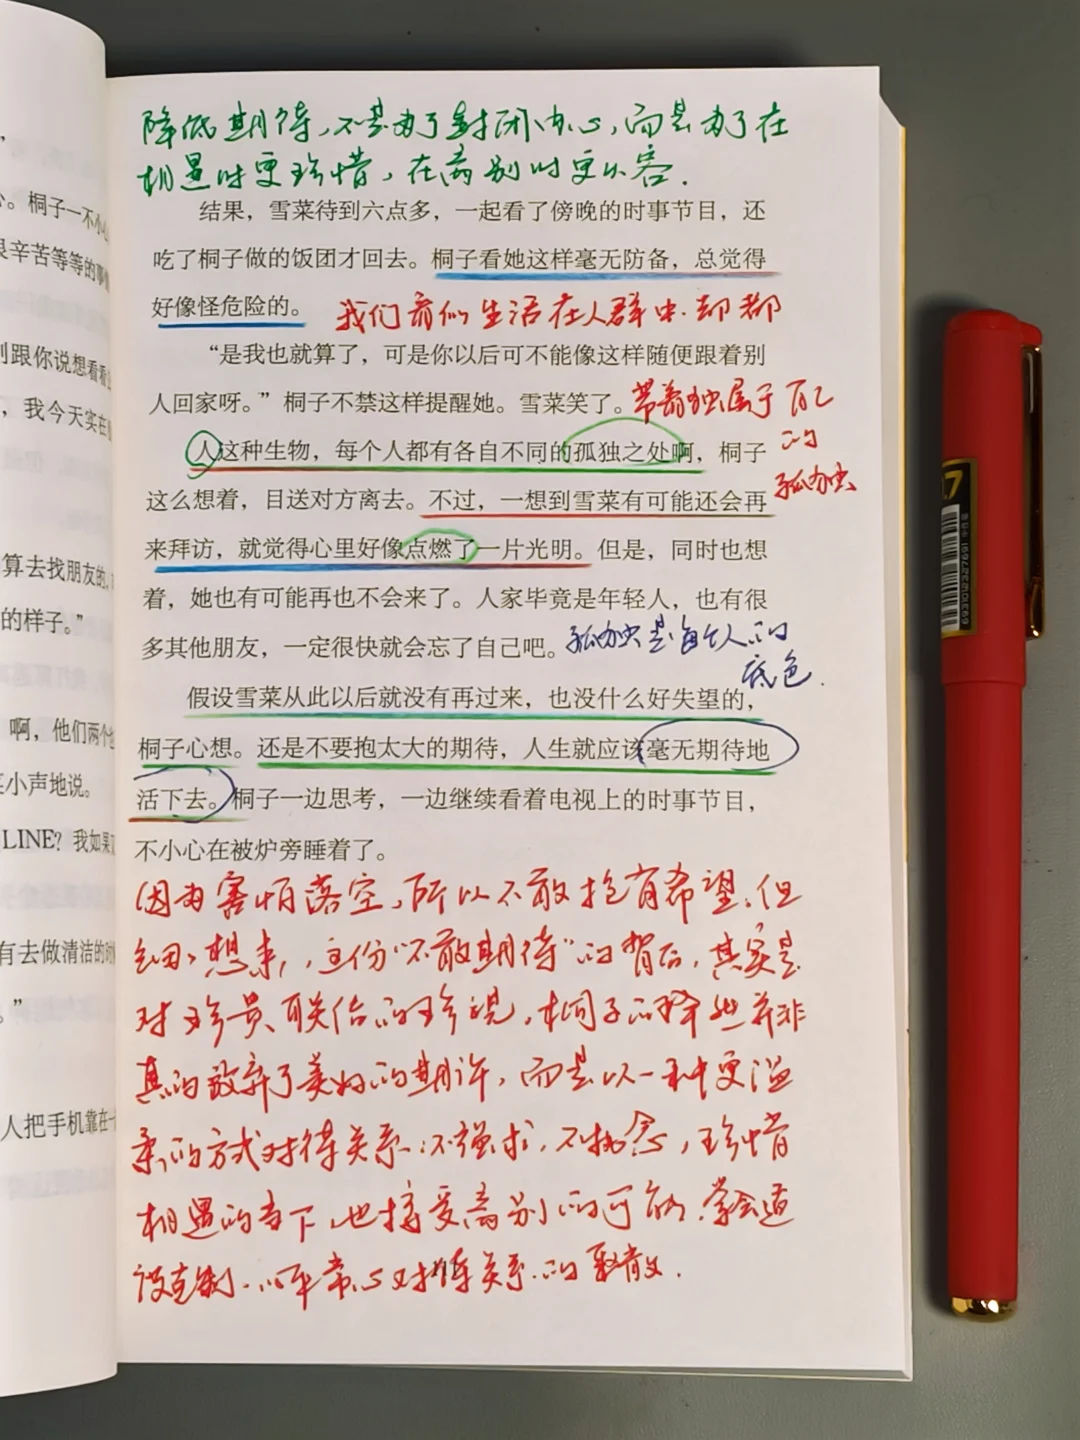 降低期待，不是为了封闭内心，而是为了在
相遇时更珍惜，在离别时更从容.
结果，雪菜待到六点多，一起看了傍晚的时事节目，还
吃了桐子做的饭团才回去。桐子看她这样毫无防备，总觉得
好像怪危险的。
我们看似生活在人群中.却都
“是我也就算了，可是你以后可不能像这样随便跟着别
人回家呀。”桐子不禁这样提醒她。雪菜笑了。
带着独属于自己
的
孤独
人这种生物，每个人都有各自不同的孤独之处啊，桐子
这么想着，目送对方离去。不过，一想到雪菜有可能还会再
来拜访，就觉得心里好像点燃了一片光明。但是，同时也想
着，她也有可能再也不会来了。人家毕竟是年轻人，也有很
多其他朋友，一定很快就会忘了自己吧。
孤独是每个人的
底色.
假设雪菜从此以后就没有再过来，也没什么好失望的，
桐子心想。还是不要抱太大的期待，人生就应该毫无期待地
活下去。桐子一边思考，一边继续看着电视上的时事节目，
不小心在被炉旁睡着了。
因为害怕落空，所以不敢抱有希望.但
细细想来，这份“不敢期待”的背后，其实是
对珍贵联结的珍视，桐子的释然并非
真的放弃了美好的期许，而是以一种更温
柔的方式对待关系:不强求，不执念，珍惜
相遇的当下，也接受离别的可能.
以平常心对待关系的聚散.
”
心。桐子一不小心
很辛苦等等的事情
别跟你说想看看
，我今天实在
算去找朋友的，
的样子。”
啊，他们两个
小声地说。
LINE？我如果
有去做清洁的时候
。”
人把手机靠在一
.7
6930123271691